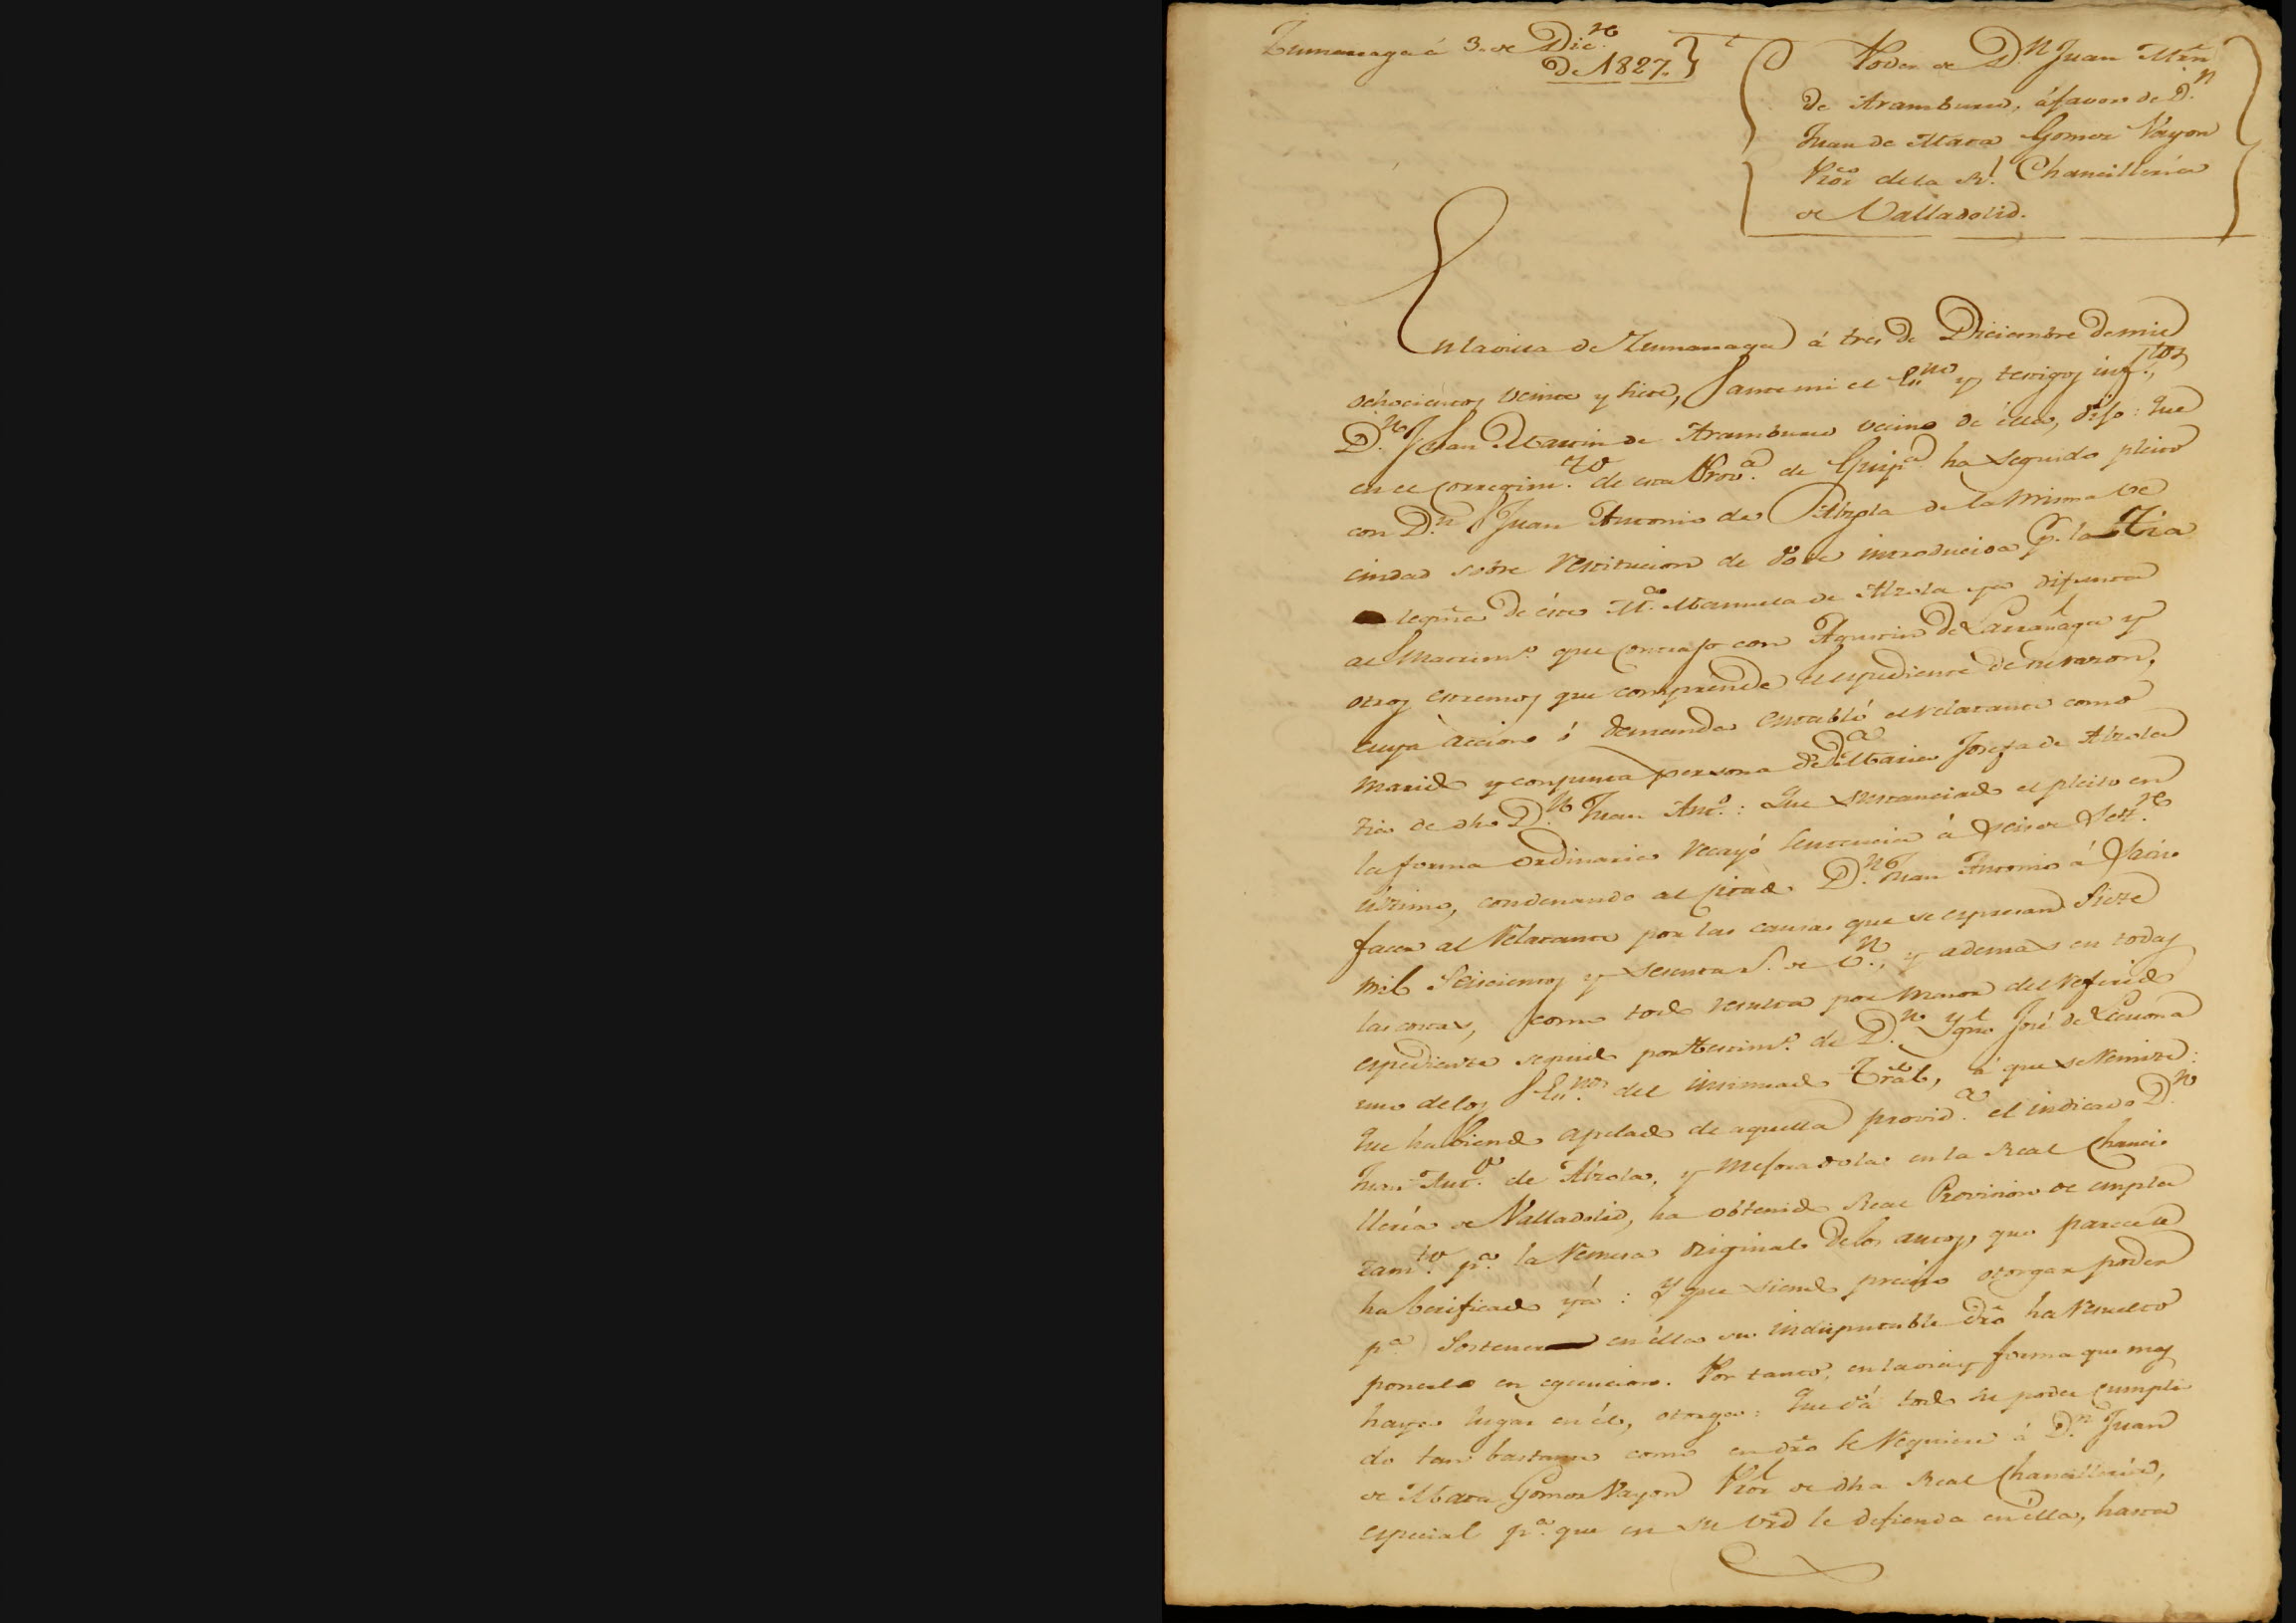 Zumarraga á 3. de Dic.re
De 1827.
Poder de D.n Juan Mrn
de Aramburu, á favor de D.n
Juan de Mata Gomez Rayon
Pror de la Rl. Chancilleria
de Valladolid.
En la villa de Zumarraga á tres de Diciembre de mil
ochocientos veinte y siete, ante mi el Esno y testigos infr.tos
D.n Juan Martin de Aramburu vecino de ella, dijo: Que
en el correxim.to de esta Prov.a de Guip.a ha seguido pleito
con D.n Juan Antonio de Alzola de la misma ve
cindad sobre restitucion de dote introducida p.r la Tia
legma de éste M.a Manuela de Alzola ya difunta
al matrim.o que contrajo con Agustin de Larrañaga y
otros extremos que comprende el espediente de su razon,
cuya accion ó demanda entabló el relatante como
marido y conjunta persona de D.a Maria Josefa de Alzola
tia de dho D.n Juan Ant.o: Que sustanciado el pleito en
la forma ordinaria recayó sentencia á seis de Set.re
último, condenando al citado D.n Juan Antonio á satis
facer al relatante por las causas que se expresan siete
mil seiscientos y sesenta r.s de v.n, y ademas en todas
las costas, como todo resulta por menor del referido
espediente seguido por testim.o de D.n Ygn.o José de Lecuona
uno de los Esnos del insinuado Tral, á que se remite:
Que habiendo apelado de aquella provid.a el indicado D.n
Juan Ant.o de Alzola, y mejoradola en la Real Chanci
lleria de Valladolid, ha obtenido Real Provision de empla
zam.to p.a la remesa original de los autos, que parece se
ha berificado yá: Y que siendo preciso otorgar poder
p.a sostener en élla su indisputable dro ha resuelto
ponerlo en egecucion. Por tanto, en la via y forma que mas
haya lugar en él, otorga: Que dá todo su poder cumpli
do tan bastante como en dro se requiere á D.n Juan
de Mata Gomez Rayon Pror de dha Real Chancilleria,
especial p.a que en su vrd le defienda en élla, hasta